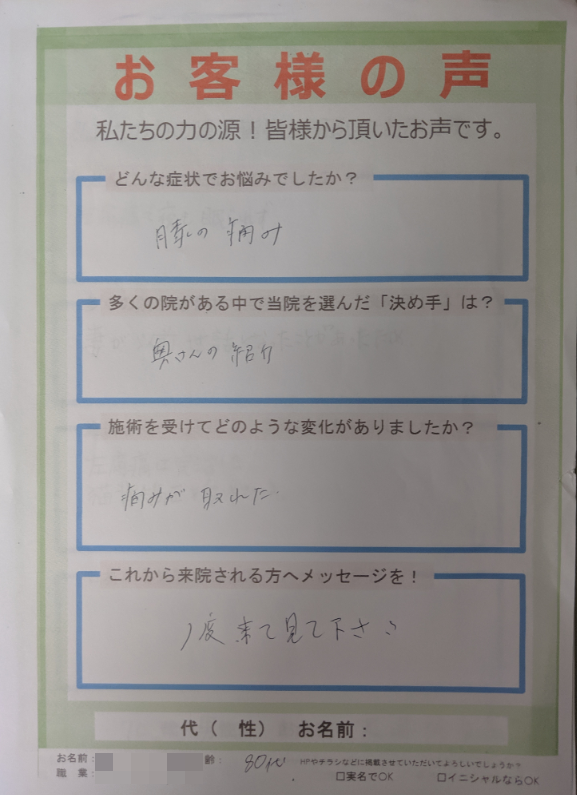 お客様の声
私たちの力の源！皆様から頂いたお声です。
どんな症状でお悩みでしたか？
膝の痛み
多くの院がある中で当院を選んだ「決め手」は？
奥さんの紹介
施術を受けてどのような変化がありましたか？
痛みが取れた
これから来院される方へメッセージを！
1度来て見て下さい
代（　性）　お名前：
お名前：
齢： 80代
HPやチラシなどに掲載させていただいてよろしいでしょうか？
職　業：
□実名でOK　□イニシャルならOK